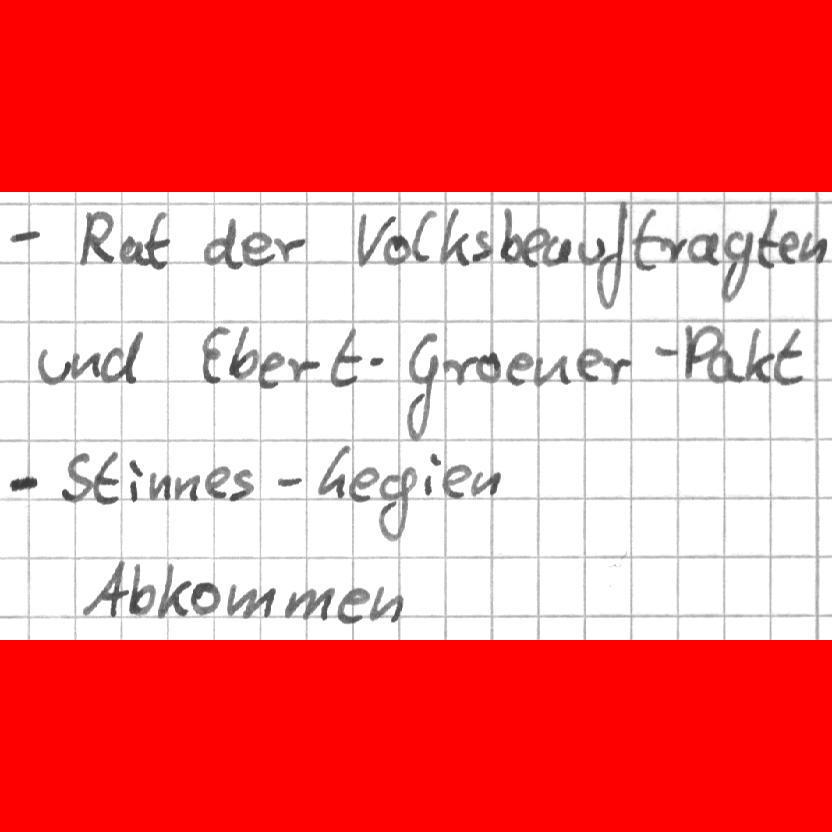 - Rat der Volksbeauftragten
und Ebert-Groener-Pakt
- Stinnes - hegien
Abkommen